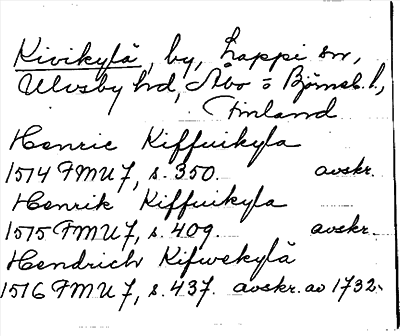 Kivikylä, by, Lappi sn,
Ulvsby hd, Åbo o Björneb. l.,
Finland
Henric Kiffuikyla
1514 FMU 7, s. 350. avskr.
Henrik Kiffuikyla
1515 FMU 7, s. 409. avskr.
Hendrich Kifwekylä
1516 FMU 7, s. 437. avskr. av 1732.